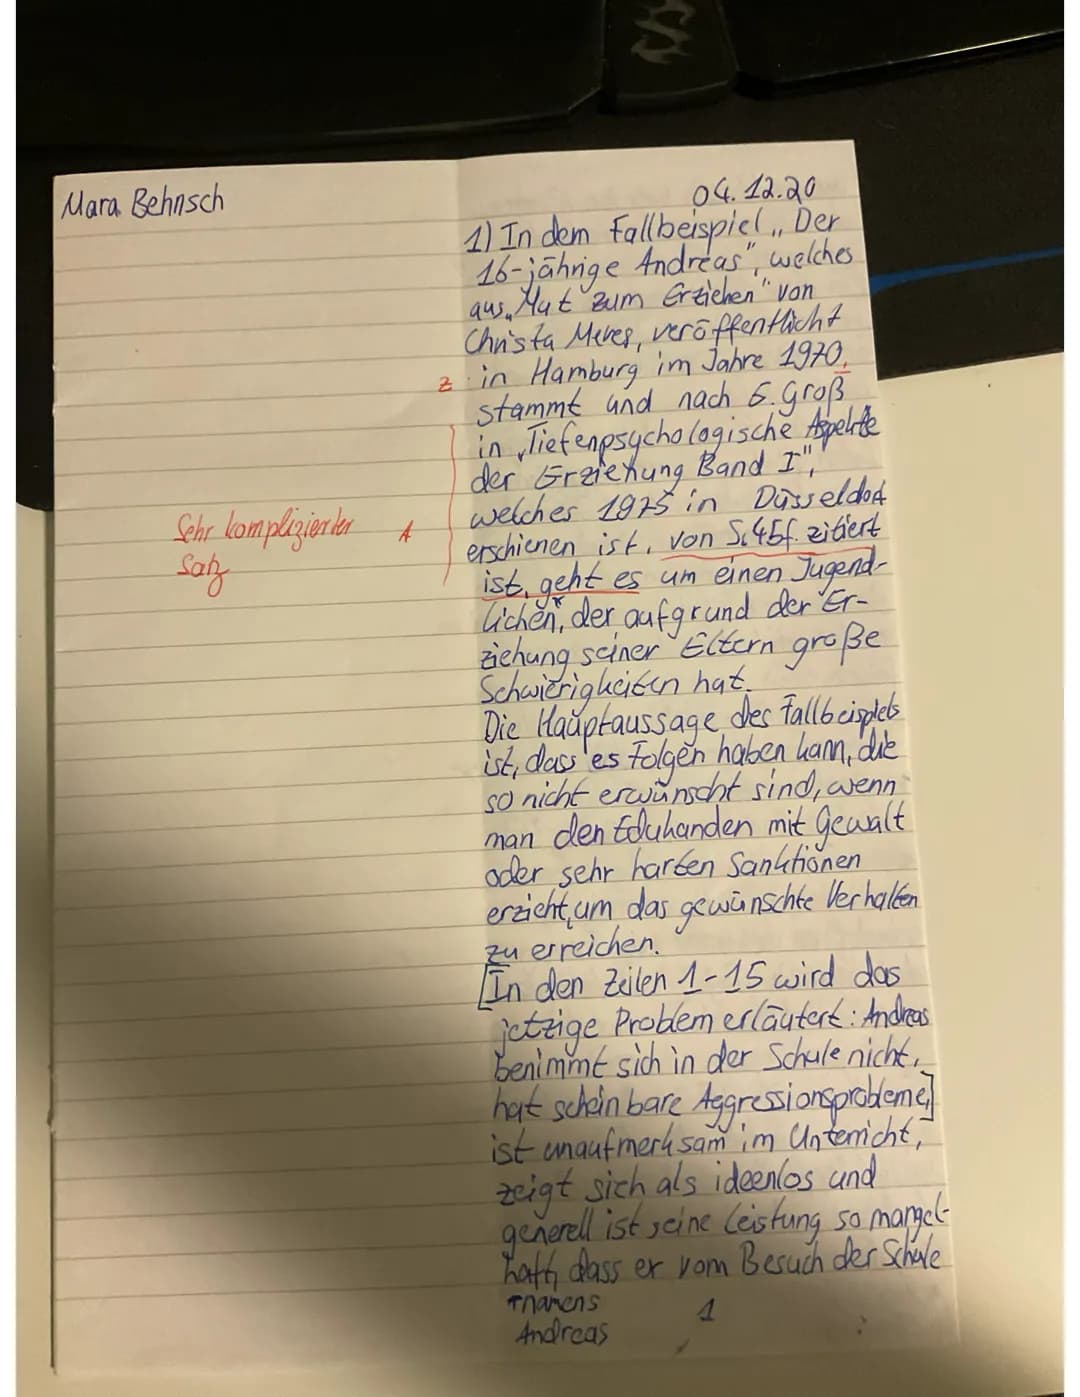 Mara Behnsch
04.12.20
1) In dem Fallbeispiel „Der
16-jährige Andreas", welches
aus „Mut zum Erziehen" von
Christa Meves, veröffentlicht
z in Hamburg im Jahre 1970,
stammt und nach E. Groß
in „Tiefenpsychologische Aspekte
der Erziehung Band I",
welches 1975 in Düsseldorf
Sehr komplizierter A
Satz
erschienen ist, von S.45f. zitiert
ist, geht es um einen Jugend-
lichen*, der aufgrund der Er-
ziehung seiner Eltern große
Schwierigkeiten hat.
Die Hauptaussage des Fallbeispiels
ist, dass es Folgen haben kann, die
so nicht erwünscht sind, wenn
man den Eduhanden mit Gewalt
oder sehr harten Sanktionen
erzieht, um das gewünschte Verhalten
zu erreichen.
[In den Zeilen 1-15 wird das
jetzige Problem erläutert: Andreas
benimmt sich in der Schule nicht,
hat scheinbare Aggressionsprobleme,]
ist unaufmerksam im Unterricht,
zeigt sich als ideenlos und
generell ist seine Leistung so mangel-
haft, dass er vom Besuch der Schule
*namens
Andreas
1